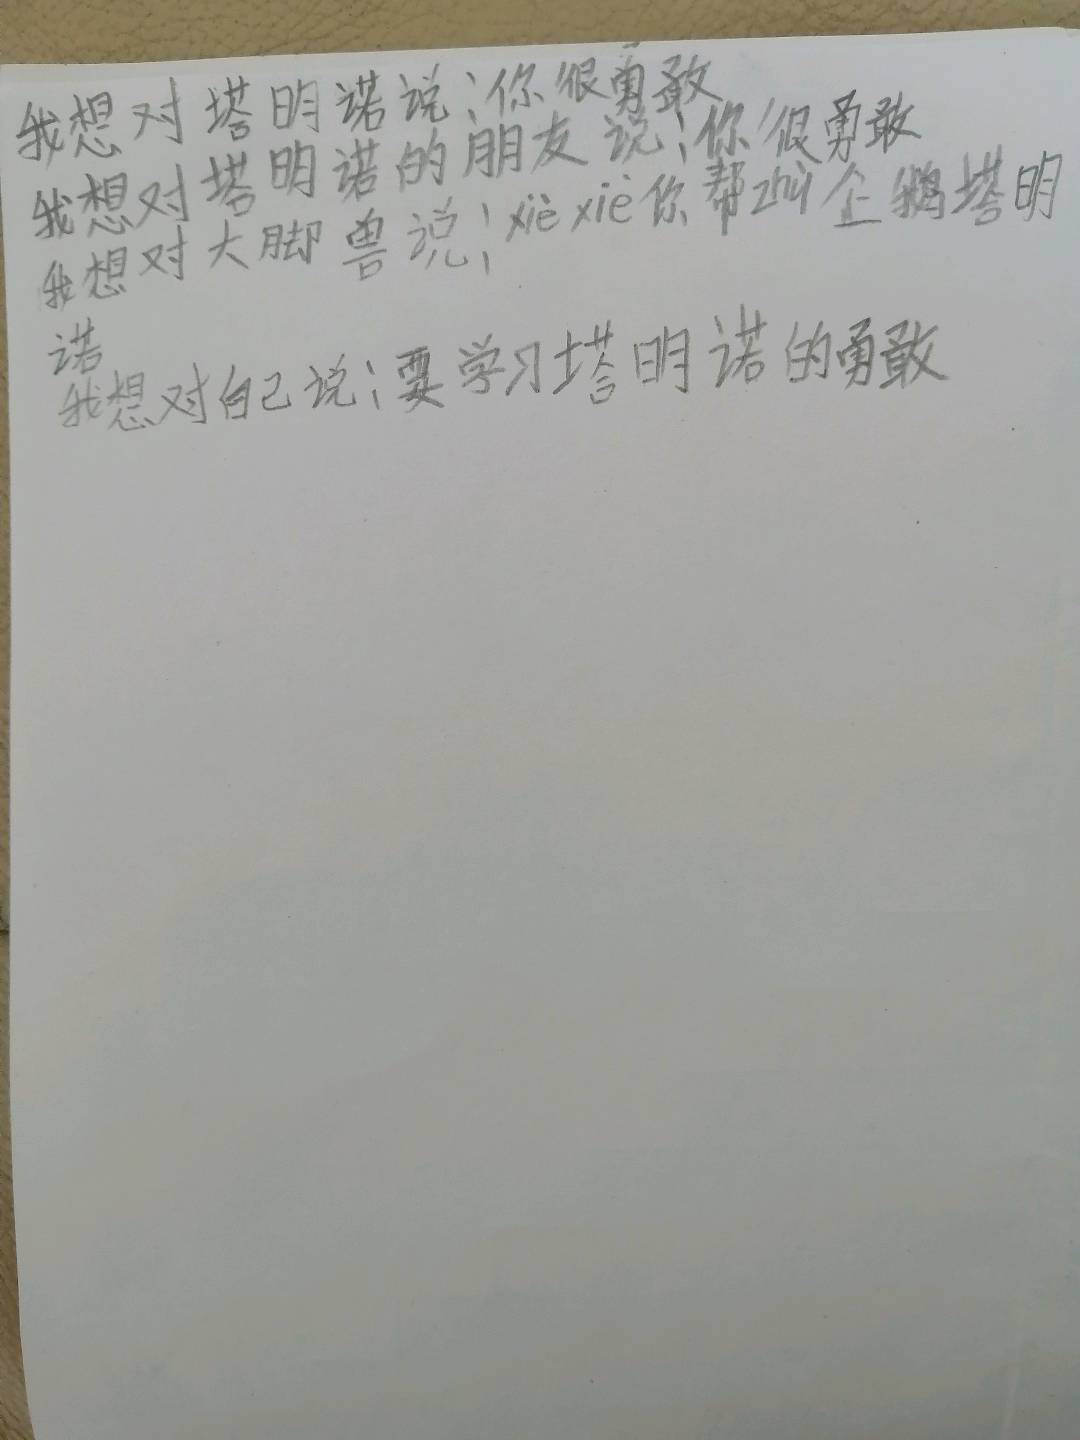 我想对塔明诺说：你很勇敢
我想对塔明诺的朋友说：你很勇敢
我想对大脚兽说：xiè xiè你帮zhù企鹅塔明
诺
我想对自己说：要学习塔明诺的勇敢